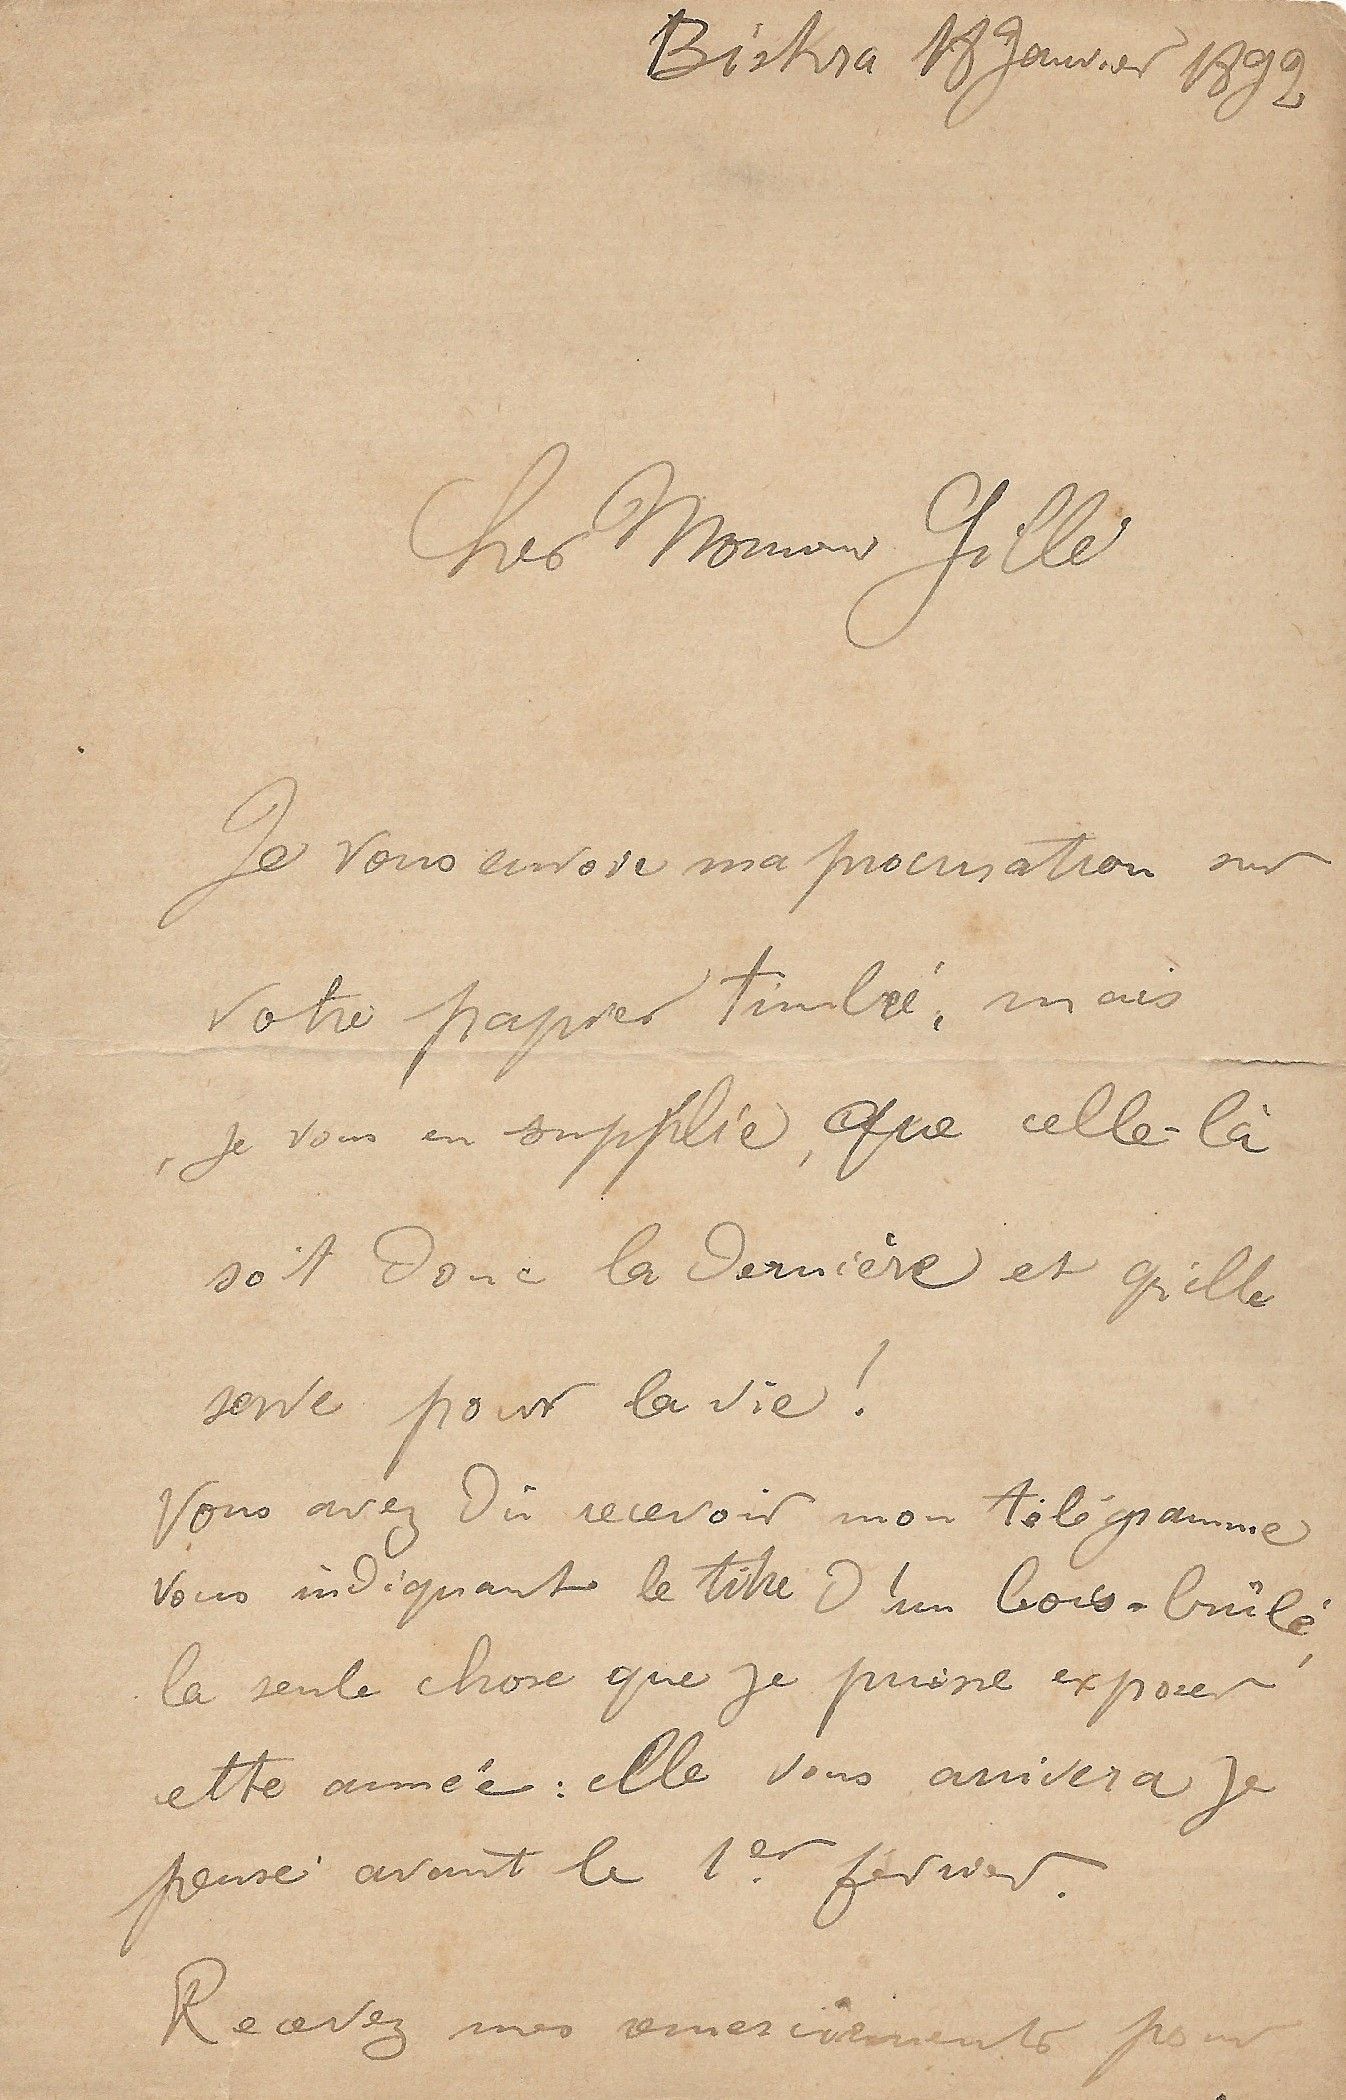 Biskra 18 Janvier 1892
Cher Monsieur Gillé
Je vous envoie ma procuration sur
votre papier timbré, mais
, je vous en supplie, que celle-là
soit donc la dernière et qu'elle
serve pour la vie !
Vous avez dû recevoir mon télégramme
vous indiquant le titre d'un bois-brûlé,
la seule chose que je puisse exposer
cette année : elle vous arrivera je
pense avant le 1er février.
Recevez mes remerciements pour